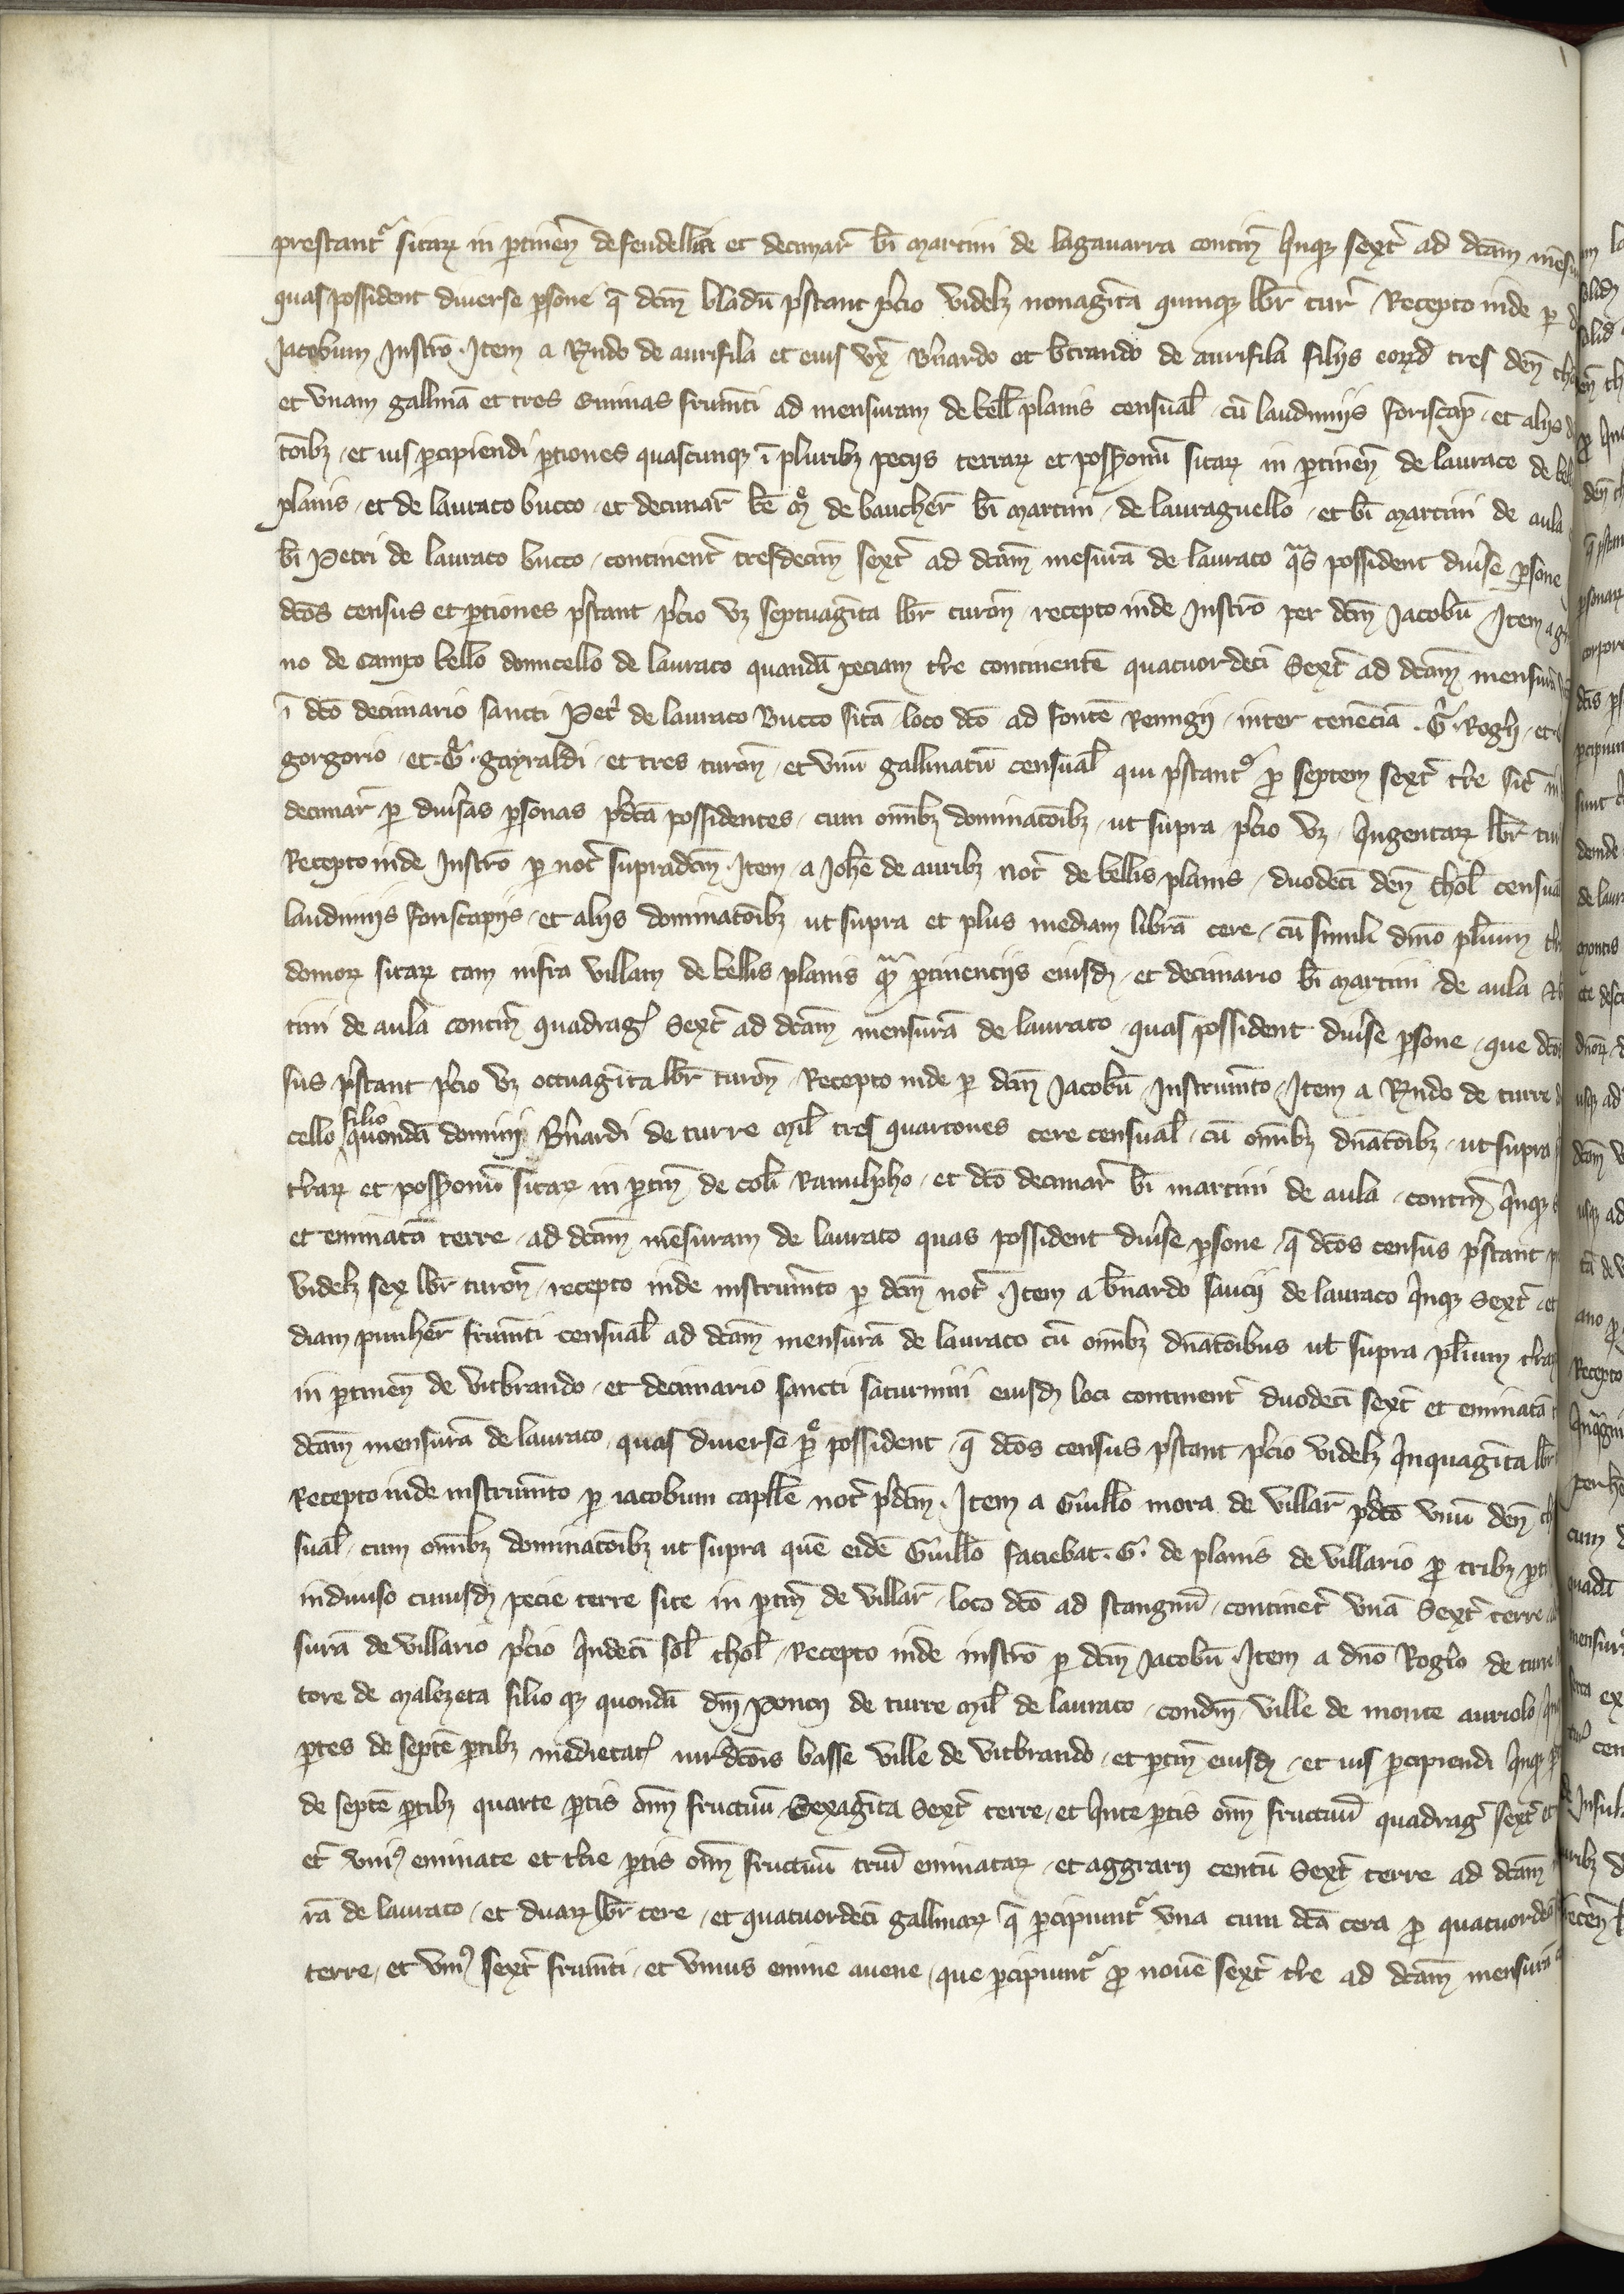 prestantr sitarum in ptinen defendellia et decimar bi martini de lagauarra contin qnqz sexter ad dcam mesu
quas possident diuerse psone q dcm bladu pstant pcio videlz nonaginta quinqz lbr tur Recepto inde p d
Jacobum Instro. Item a Rndo de aurifila et eius vx Bnardo et btrando de aurifila filijs eorumd tres den tho
et vnam gallina et tres eminas frumti ad mensuram de bell planis censual cu laudimijs foriscap et alijs d
coibz et ius pcipiendi ptiones quascunqz i pluribz pecijs terrarum et possionu sitarum in ptinen de laurace de bel
planis et de lauraco bucco et decimar be m de baucher bi martini de lauraguello et bi martini de aula
bi Petri de lauraco bucco continent tresdecim sext ad dcam mesura de lauraco qas possident diuse psone
dcos census et ptiones pstant pcio vz septuaginta lbr turon recepto inde Instro per dcm Jacobu Item a g
no de campo bello domicello de lauraco quanda peciam tre continente quatuordeci Sext ad dcam mensura
i dco decimario sancti Pet de lauraco Bucco sita loco dco ad fonte Remigij inter tenencia .G. Rogh et
gorgorio et .G. gayraldi et tres turon et vnu gallinatu censual qui pstantr pro septem sext tre sit in
decimar p diusas psonas pdcta possidentes cum omibz dominacoibz ut supra pcio vz Ingentarum lbr tur
Recepto inde Instro p not supradcm. Item a Johe de auribz not de bellis planis duodeci den thol censua
laudimijs foriscapijs et alijs dominacoibz ut supra et plus mediam libra cere cu simili dnio plium
domorum sitarum tam infra villam de bellis planis qam ptinencijs eiusdz et decimario bi martini de aula
tini de aula contin quadrag Sext ad dcam mensura de lauraco quas possident diuse psone que dcos
sus pstant pcio vz octuaginta lbr turon Recepto inde p dcm Jacobu Instrumto Item a Rndo de turre d
cello filio quonda domini Bnardi de turre mil tres quartones cere censual cu omibz dnacoibz ut supra
trarum et possionu sitarum in ptin de colli Ranulpho et dco decimar bi martini de aula contin qnqz
et eminata terre ad dcam mesuram de lauraco quas possident diuse psone q dcos census pstant
videlz sex lbr turon recepto inde instrumto p dcm not. Item a bnardo saucij de lauraco qnqz Sext et
diam punher frumti censual ad dcam mensura de lauraco cu omibz dnacoibus ut supra plium trarum
in ptinen de vitbrando et decimario sancti saturnini eiusdz loci continent duodeci sext et eminata
dcam mensura de lauraco quas diuerse pe possident q dcos census pstant pcio videlz qnquaginta lbr
Recepto inde instrumto p iacobum caplle not pdcm. Item a Guillo mora de villar pdco vnu den th
sual cum omibz dominacoibz ut supra que eide Guillo faciebat .G. de planis de villario pro tribz pti
indiuiso cuiusdz pecie terre site in ptin de villar loco dco ad stangnu continet vna Sext terre
sura de villario pcio qndeci sol thol Recepto inde instro p dcm Jacobu. Item a dno Roglo de turre
tore de malezeta filio qz quonda dni Poncij de turre mil de lauraco condni ville de monte auriolo
ptes de septe ptibz medietat iurdcois basse ville de vitbrando et ptin eiusdz et ius pcipiendi qnqz p
de septe ptibz quarte ptis oim fructuu Sexaginta Sext terre et qnte ptis oim fructuu quadrag sext et
et vni9 eminate et tcie ptis oim fructuu triu eminatarum et aggrarij centu Sext terre ad dcam
ra de lauraco et duarum lbr cere et quatuordeci gallinarum q pcipiuntr vna cum dca cera pro quatuordeci
terre et vni9 sext frumti et vnius emine auene que pcipiuntr pro noue sext tre ad dcam mensura